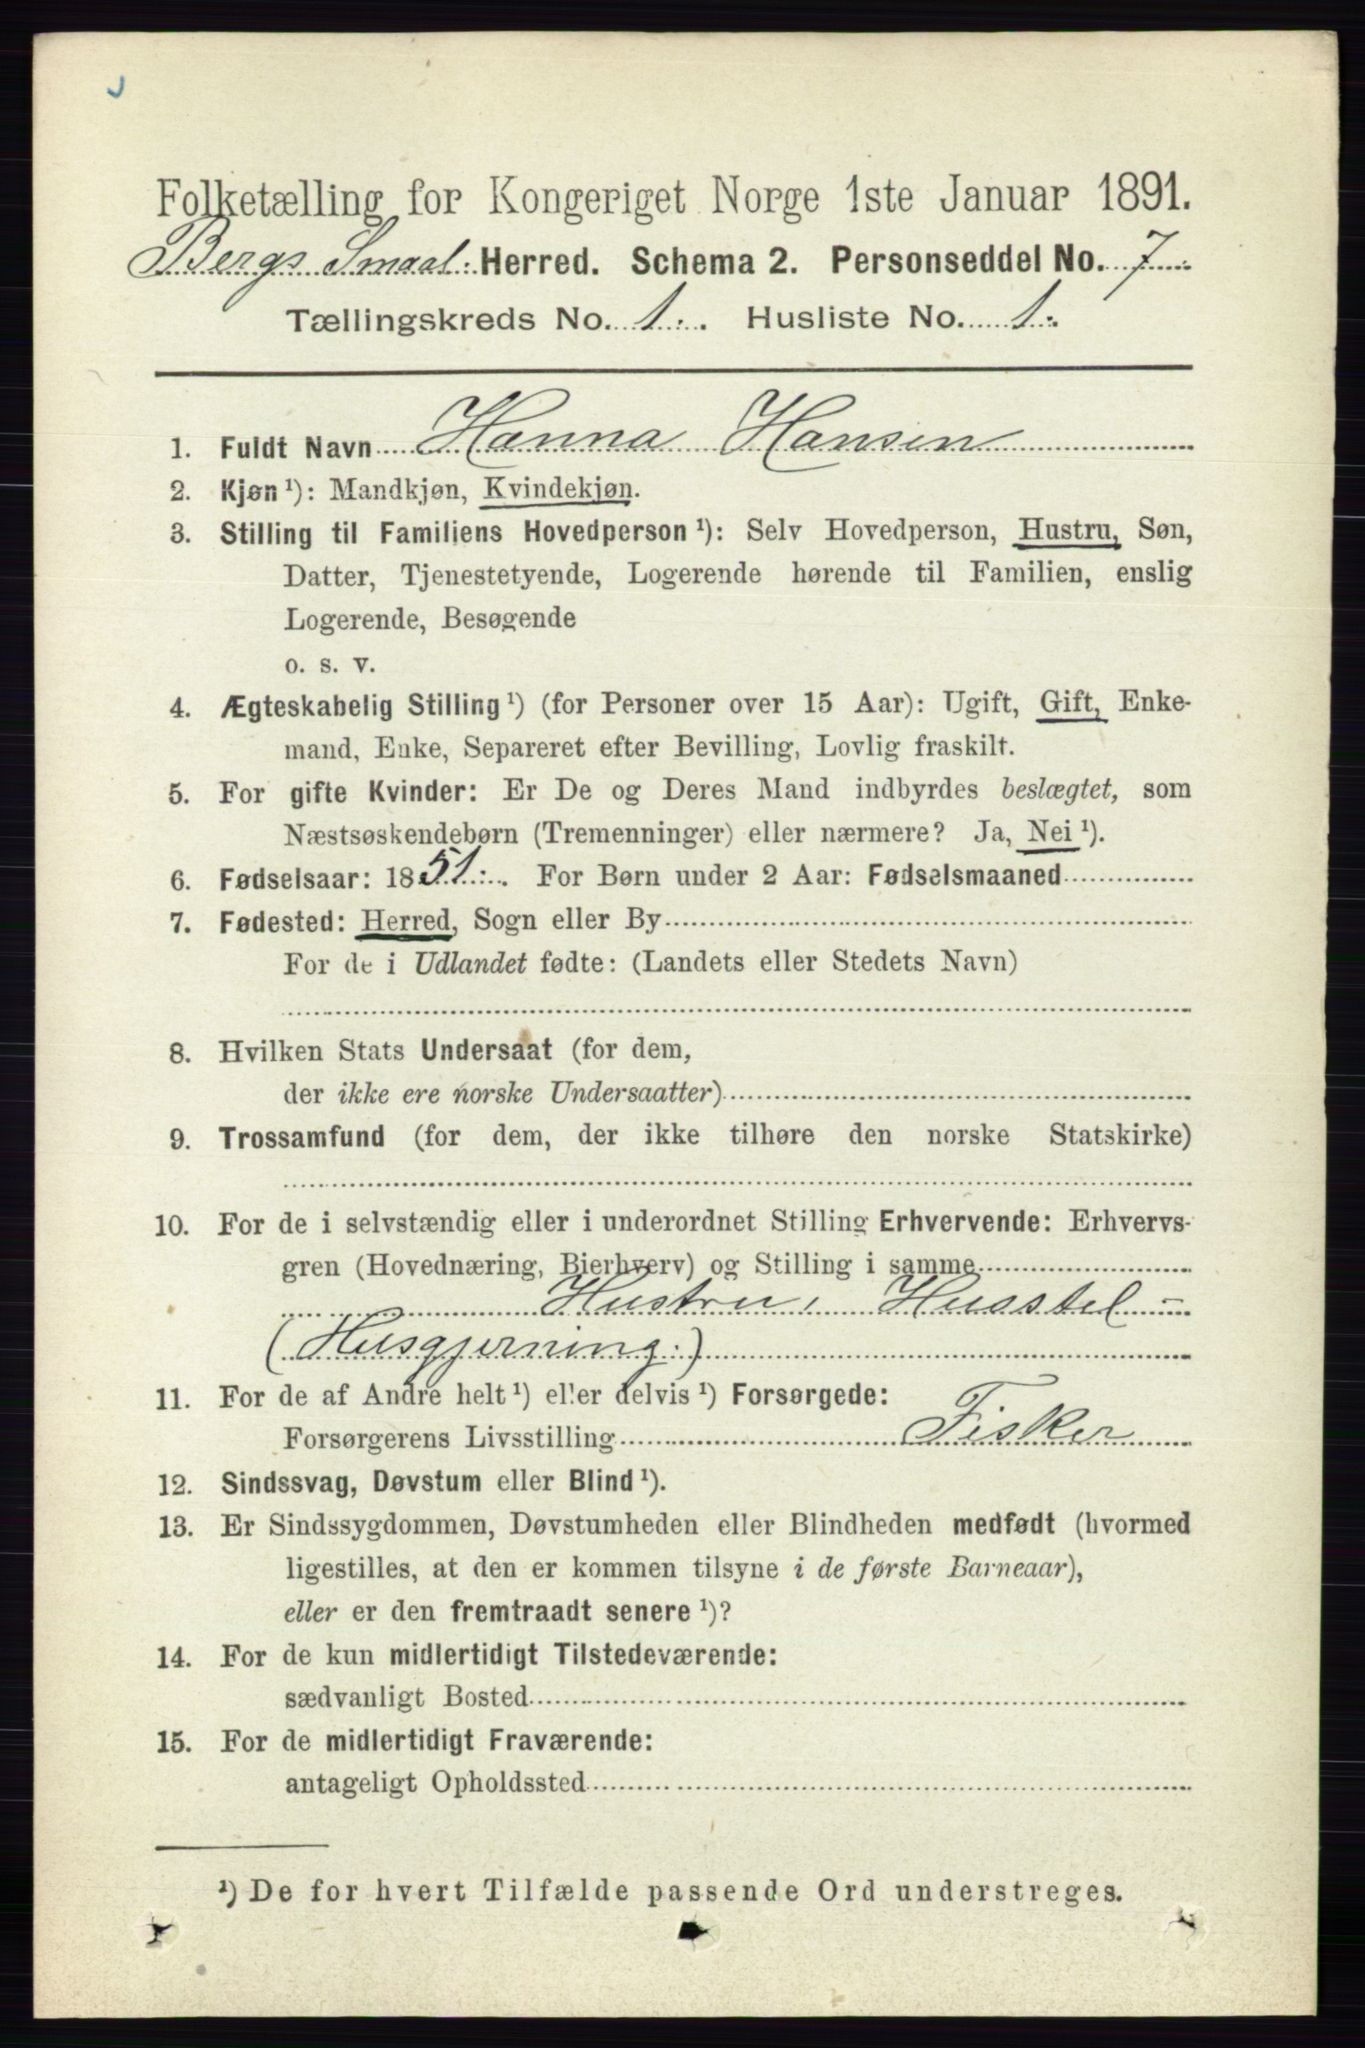 Folketælling for Kongeriget Norge 1ste Januar 1891.
Bergs Smaal: Herred. Schema 2. Personseddel No. 7
Tællingskreds No. 1. Husliste No. 1.
1. Fuldt Navn Hanna Hansen
2. Kjøn ¹): Mandkjøn, Kvindekjøn.
3. Stilling til Familiens Hovedperson ¹): Selv Hovedperson, Hustru, Søn,
Datter, Tjenestetyende, Logerende hørende til Familien, enslig
Logerende, Besøgende
o. s. v.
4. Ægteskabelig Stilling ¹) (for Personer over 15 Aar): Ugift, Gift, Enke-
mand, Enke, Separeret efter Bevilling, Lovlig fraskilt.
5. For gifte Kvinder: Er De og Deres Mand indbyrdes beslægtet, som
Næstsøskendebørn (Tremenninger) eller nærmere? Ja, Nei ¹).
6. Fødselsaar: 1851. For Børn under 2 Aar: Fødselsmaaned
7. Fødested: Herred, Sogn eller By
For de i Udlandet fødte: (Landets eller Stedets Navn)
8. Hvilken Stats Undersaat (for dem,
der ikke ere norske Undersaatter)
9. Trossamfund (for dem, der ikke tilhøre den norske Statskirke)
10. For de i selvstændig eller i underordnet Stilling Erhvervende: Erhvervs-
gren (Hovednæring, Bierhverv) og Stilling i samme
Hustru, Husstel -
(Husgjerning:)
11. For de af Andre helt ¹) eller delvis ¹) Forsørgede:
Forsørgerens Livsstilling Fisker
12. Sindssvag, Døvstum eller Blind ¹).
13. Er Sindssygdommen, Døvstumheden eller Blindheden medfødt (hvormed
ligestilles, at den er kommen tilsyne i de første Barneaar),
eller er den fremtraadt senere ¹)?
14. For de kun midlertidigt Tilstedeværende:
sædvanligt Bosted
15. For de midlertidigt Fraværende:
antageligt Opholdssted
¹) De for hvert Tilfælde passende Ord understreges.